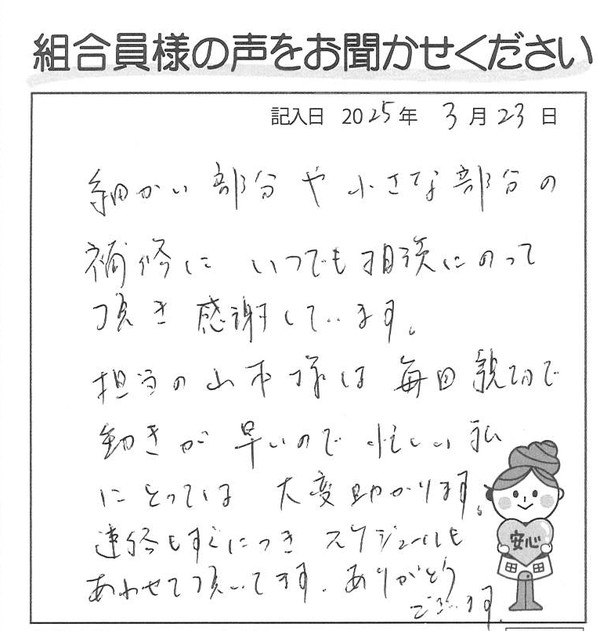 組合員様の声をお聞かせください
記入日 2025年 3月23日
細かい部分や小さな部分の
補修に いつでも相談にのって
頂き 感謝しています。
担当の山本様は 毎回親切で
動きが 早いので 忙しい私
にとっては 大変助かります。
連絡もすぐにつき スケジュールも
あわせて頂いてます。ありがとう
ございます。
安心